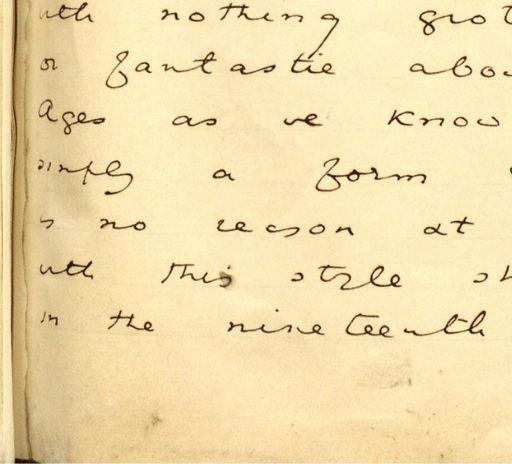 with nothing grot
or fantastic abou
Ages as we know
simply a form
is no reason at
with this style sh
in the nineteenth